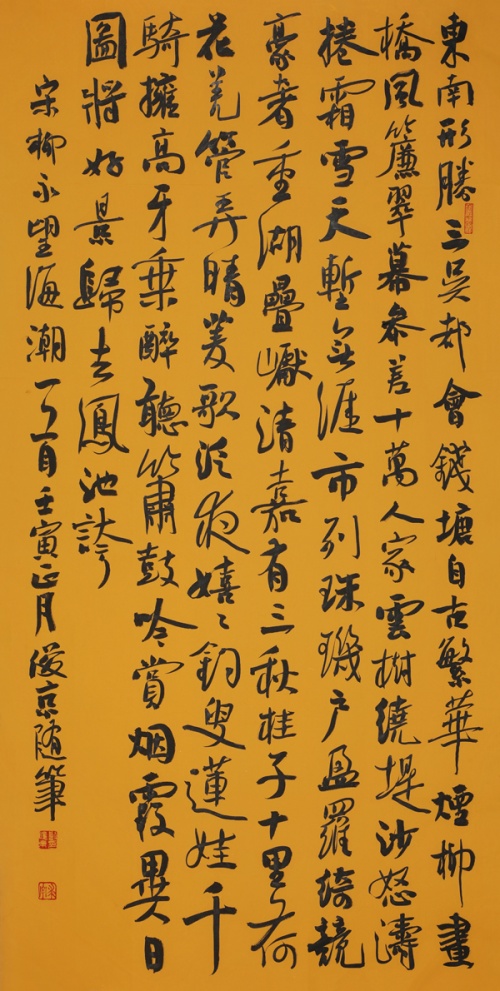 東南形勝三吳都會錢塘自古繁華煙柳畫
橋風簾翠幕參差十萬人家雲樹繞堤沙怒濤
捲霜雪天塹無涯市列珠璣户盈羅綺競
豪奢重湖疊巘清嘉有三秋桂子十里荷
花羌管弄晴菱歌泛夜嬉〻釣叟蓮娃千
騎擁高牙乘醉聽簫鼓吟賞烟霞異日
圖將好景歸去鳳池誇
宋柳永望海潮一首壬寅正月俊京随筆